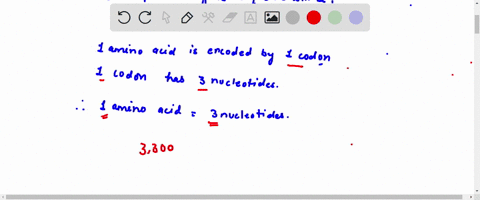 1 amino acid is encoded by 1 codon
1 codon has 3 nucleotides.
∴ 1 amino acid = 3 nucleotides.
3,300